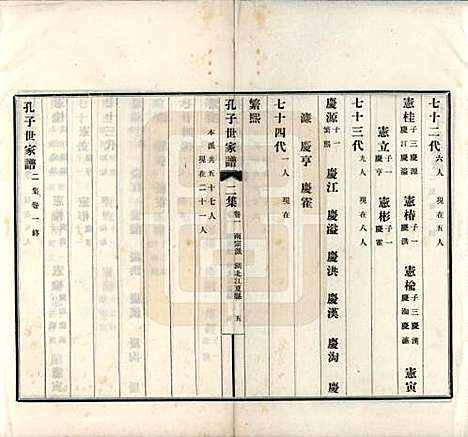 七十二代 六人 現在五人
憲桂 子三 慶源 慶江 慶溢 憲椿 子一 慶洪 憲棆 子三 慶漢 慶洵 慶濂 憲寅
憲立 子一 慶亨 憲彬 子一 慶霍
七十三代 九人 現在八人
慶源 子一 繁熙 慶江 慶溢 慶洪 慶漢 慶洵 慶
濂 慶亨 慶霍
七十四代 一人 現在
繁熙
本派共五十七人
現在二十一人
孔子世家譜 二集 卷一 南宗派 湖北江夏縣 五
孔子世家譜 二集卷一終